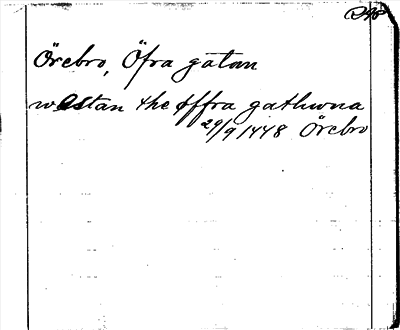 Örebro, Öfra gatan
wæstan the øffra gathwna
29/9 1448 Örebro